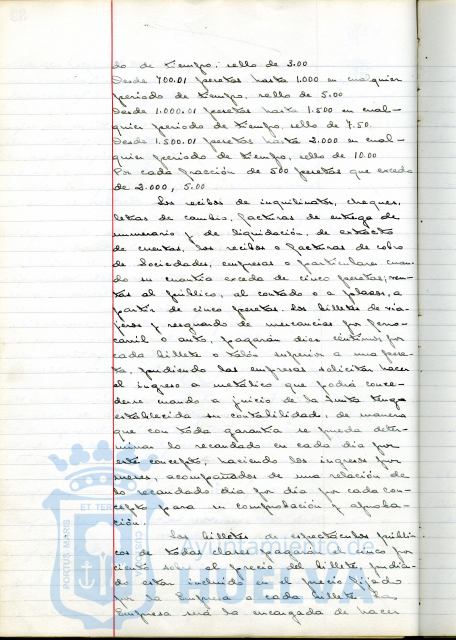 do de tiempo, sello de 3.00
Desde 700.01 pesetas hasta 1.000 en cualquier
periodo de tiempo, sello de 5.00
Desde 1.000.01 pesetas hasta 1.500 en cual-
quier periodo de tiempo, sello de 7.50.
Desde 1.500.01 pesetas hasta 2.000 en cual-
quier periodo de tiempo, sello de 10.00
Por cada fracción de 500 pesetas que exceda
de 2.000, 5.00
Los recibos de inquilinatos, cheques,
letras de cambio, facturas de entrega de
numerario y de liquidación, de extracto
de cuentas, los recibos o facturas de cobro
de Sociedades, empresas o particulares cuan-
do su cuantia exceda de cinco pesetas; ven-
tas al público, al contado o a plazos, a
partir de cinco pesetas, los billetes de via-
jeros y resguardo de mercancias por ferro-
carril o auto, pagarán diez céntimos por
cada billete o talón superior a una pese-
ta, pudiendo las empresas solicitar hacer
el ingreso a metálico que podrá conce-
derse cuando a juicio de la Junta tenga
establecida su contabilidad, de manera
que con toda garantia se pueda deter-
minar lo recaudado en cada dia por
este concepto, haciendo los ingresos por
meses, acompañados de una relación de
lo recaudado dia por dia por cada con-
cepto para su comprobación y aproba-
ción.
Los billetes de espectáculos públi-
cos de todas clases pagarán un cinco por
ciento sobre el precio del billete, pudien-
do estar incluido en el precio fijado
por la Empresa a cada billete. La
Empresa será la encargada de hacer
PORTUS MARIS
ET TERRE
CUSTODIA
Ayuntamiento de
HUELVA